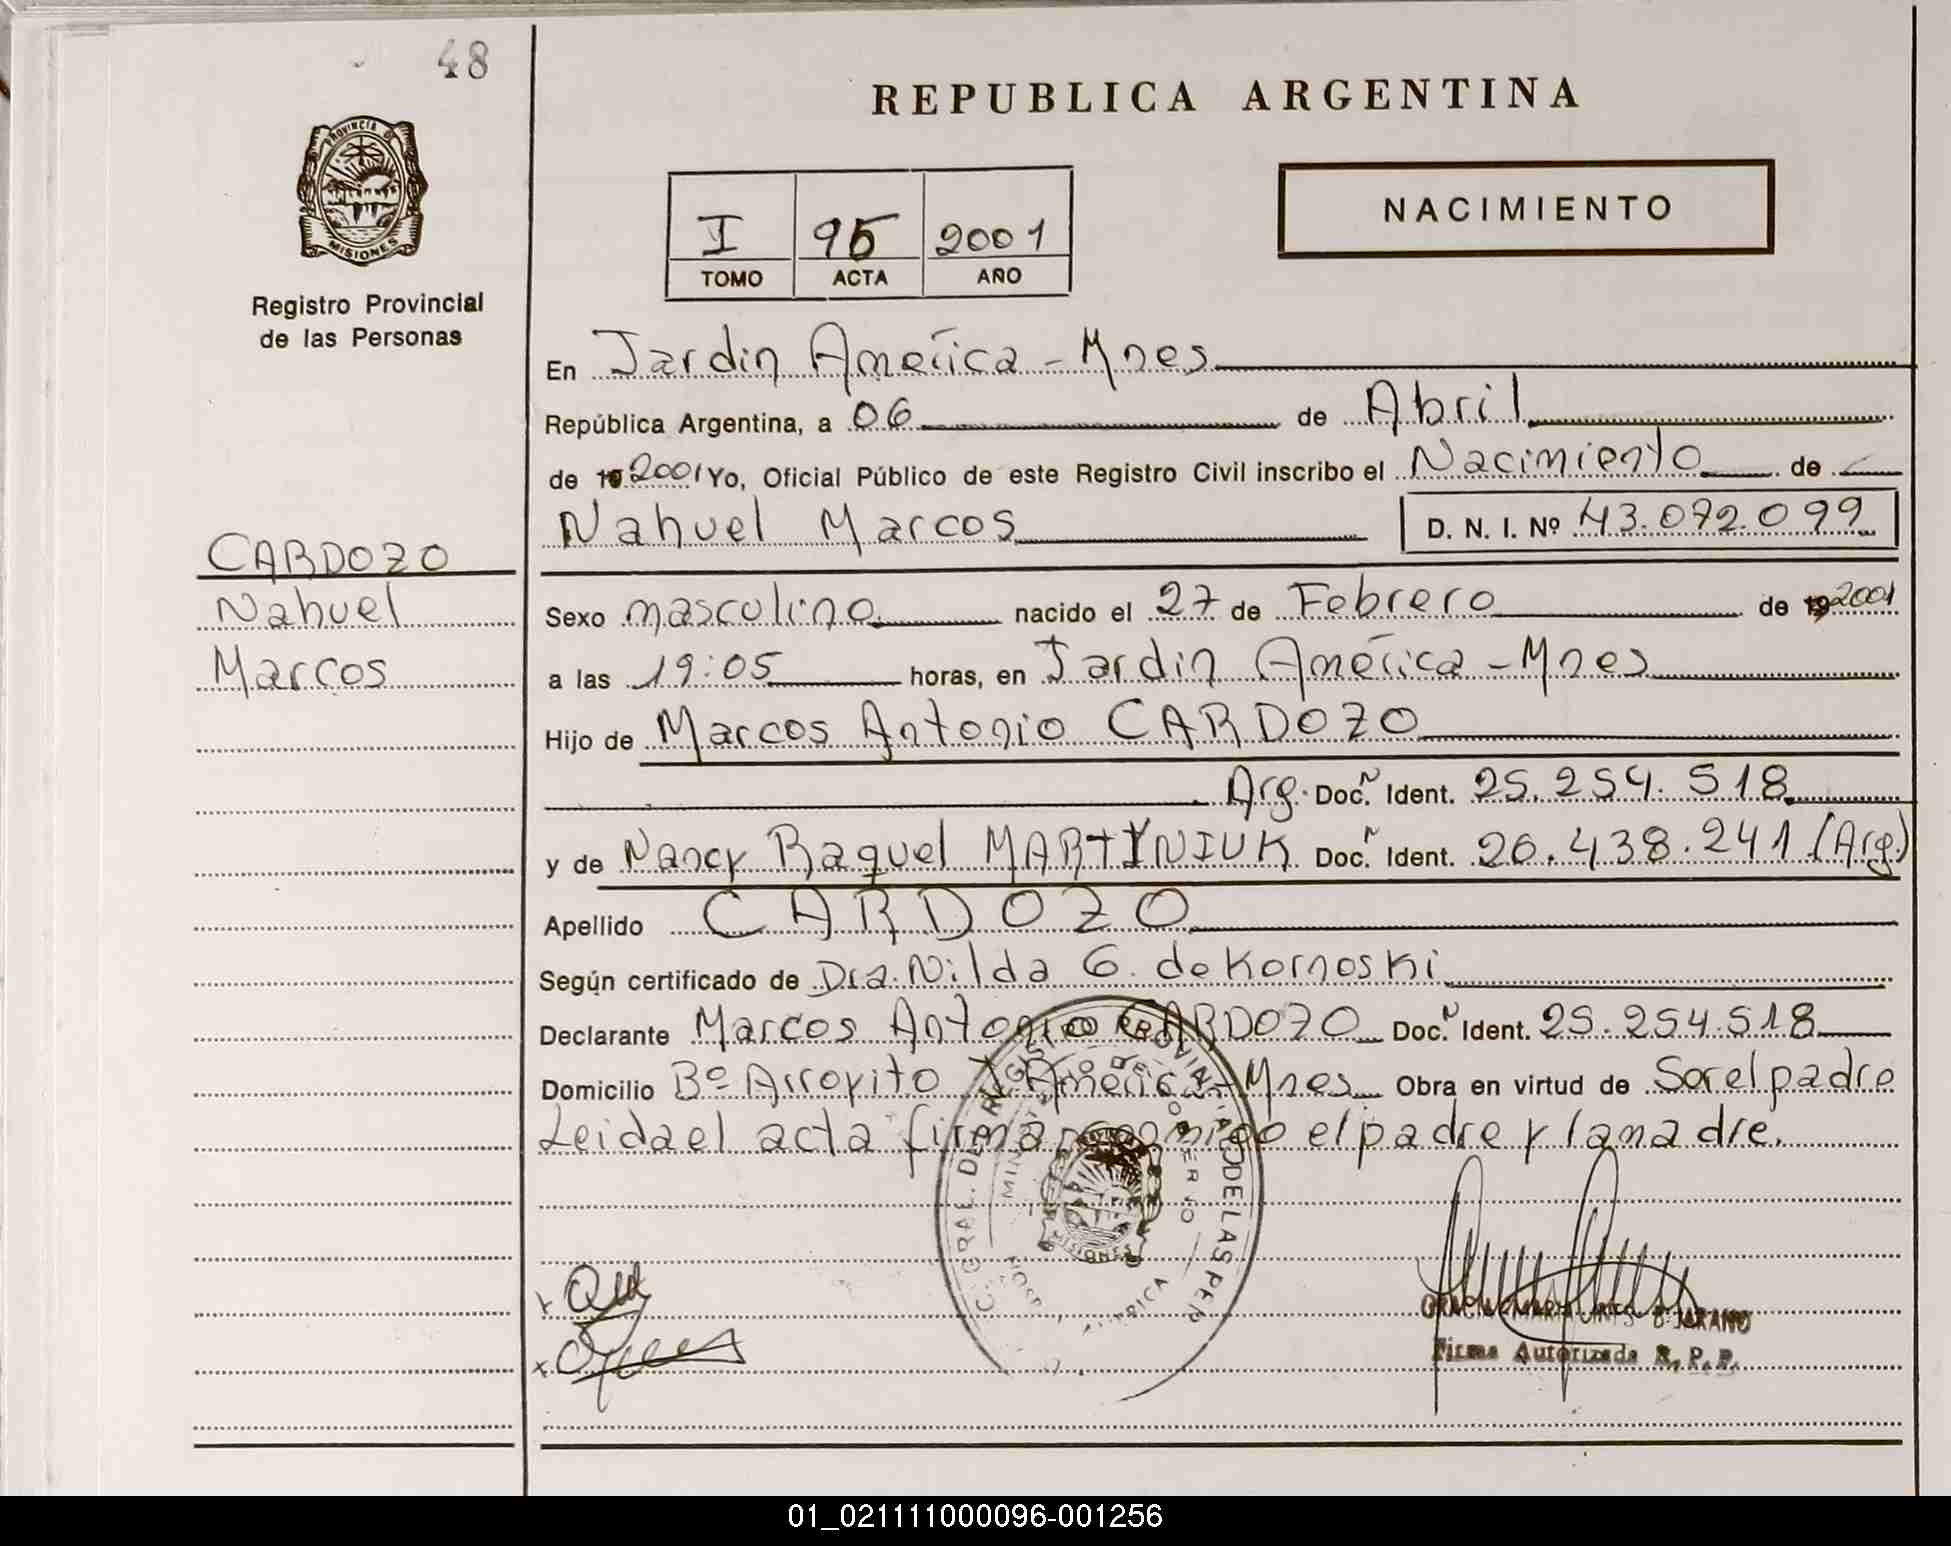 48
REPUBLICA ARGENTINA
PROVINCIA DE
MISIONES
I 95 2001
TOMO ACTA AÑO
NACIMIENTO
Registro Provincial
de las Personas
En Jardin América - Mnes
República Argentina, a 06 de Abril
de 19 2001 Yo, Oficial Público de este Registro Civil inscribo el Nacimiento de
Nahuel Marcos D. N. I. Nº 43.072.099
CARDOZO
Nahuel
Marcos
Sexo masculino nacido el 27 de Febrero de 19 2001
a las 19:05 horas, en Jardin América - Mnes
Hijo de Marcos Antonio CARDOZO
Arg. Doc. Ident. 25.254.518
y de Nancy Raquel MARTYNIUK Doc. Ident. 20.438.241 (Arg.)
Apellido CARDOZO
Según certificado de Dra. Nilda G. de Kornoski
Declarante Marcos Antonio CARDOZO Doc. Ident. 25.254.518
Domicilio Bº Arroyito J. América - Mnes Obra en virtud de Ser el padre
Leida el acta firman conmigo el padre y la madre.
GRAL. DEL REGISTRO PROVINCIAL DE LAS PER
MINISTERIO DE GOBIERNO
MISIONES
Firma Autorizada R. P. P.
01_021111000096-001256